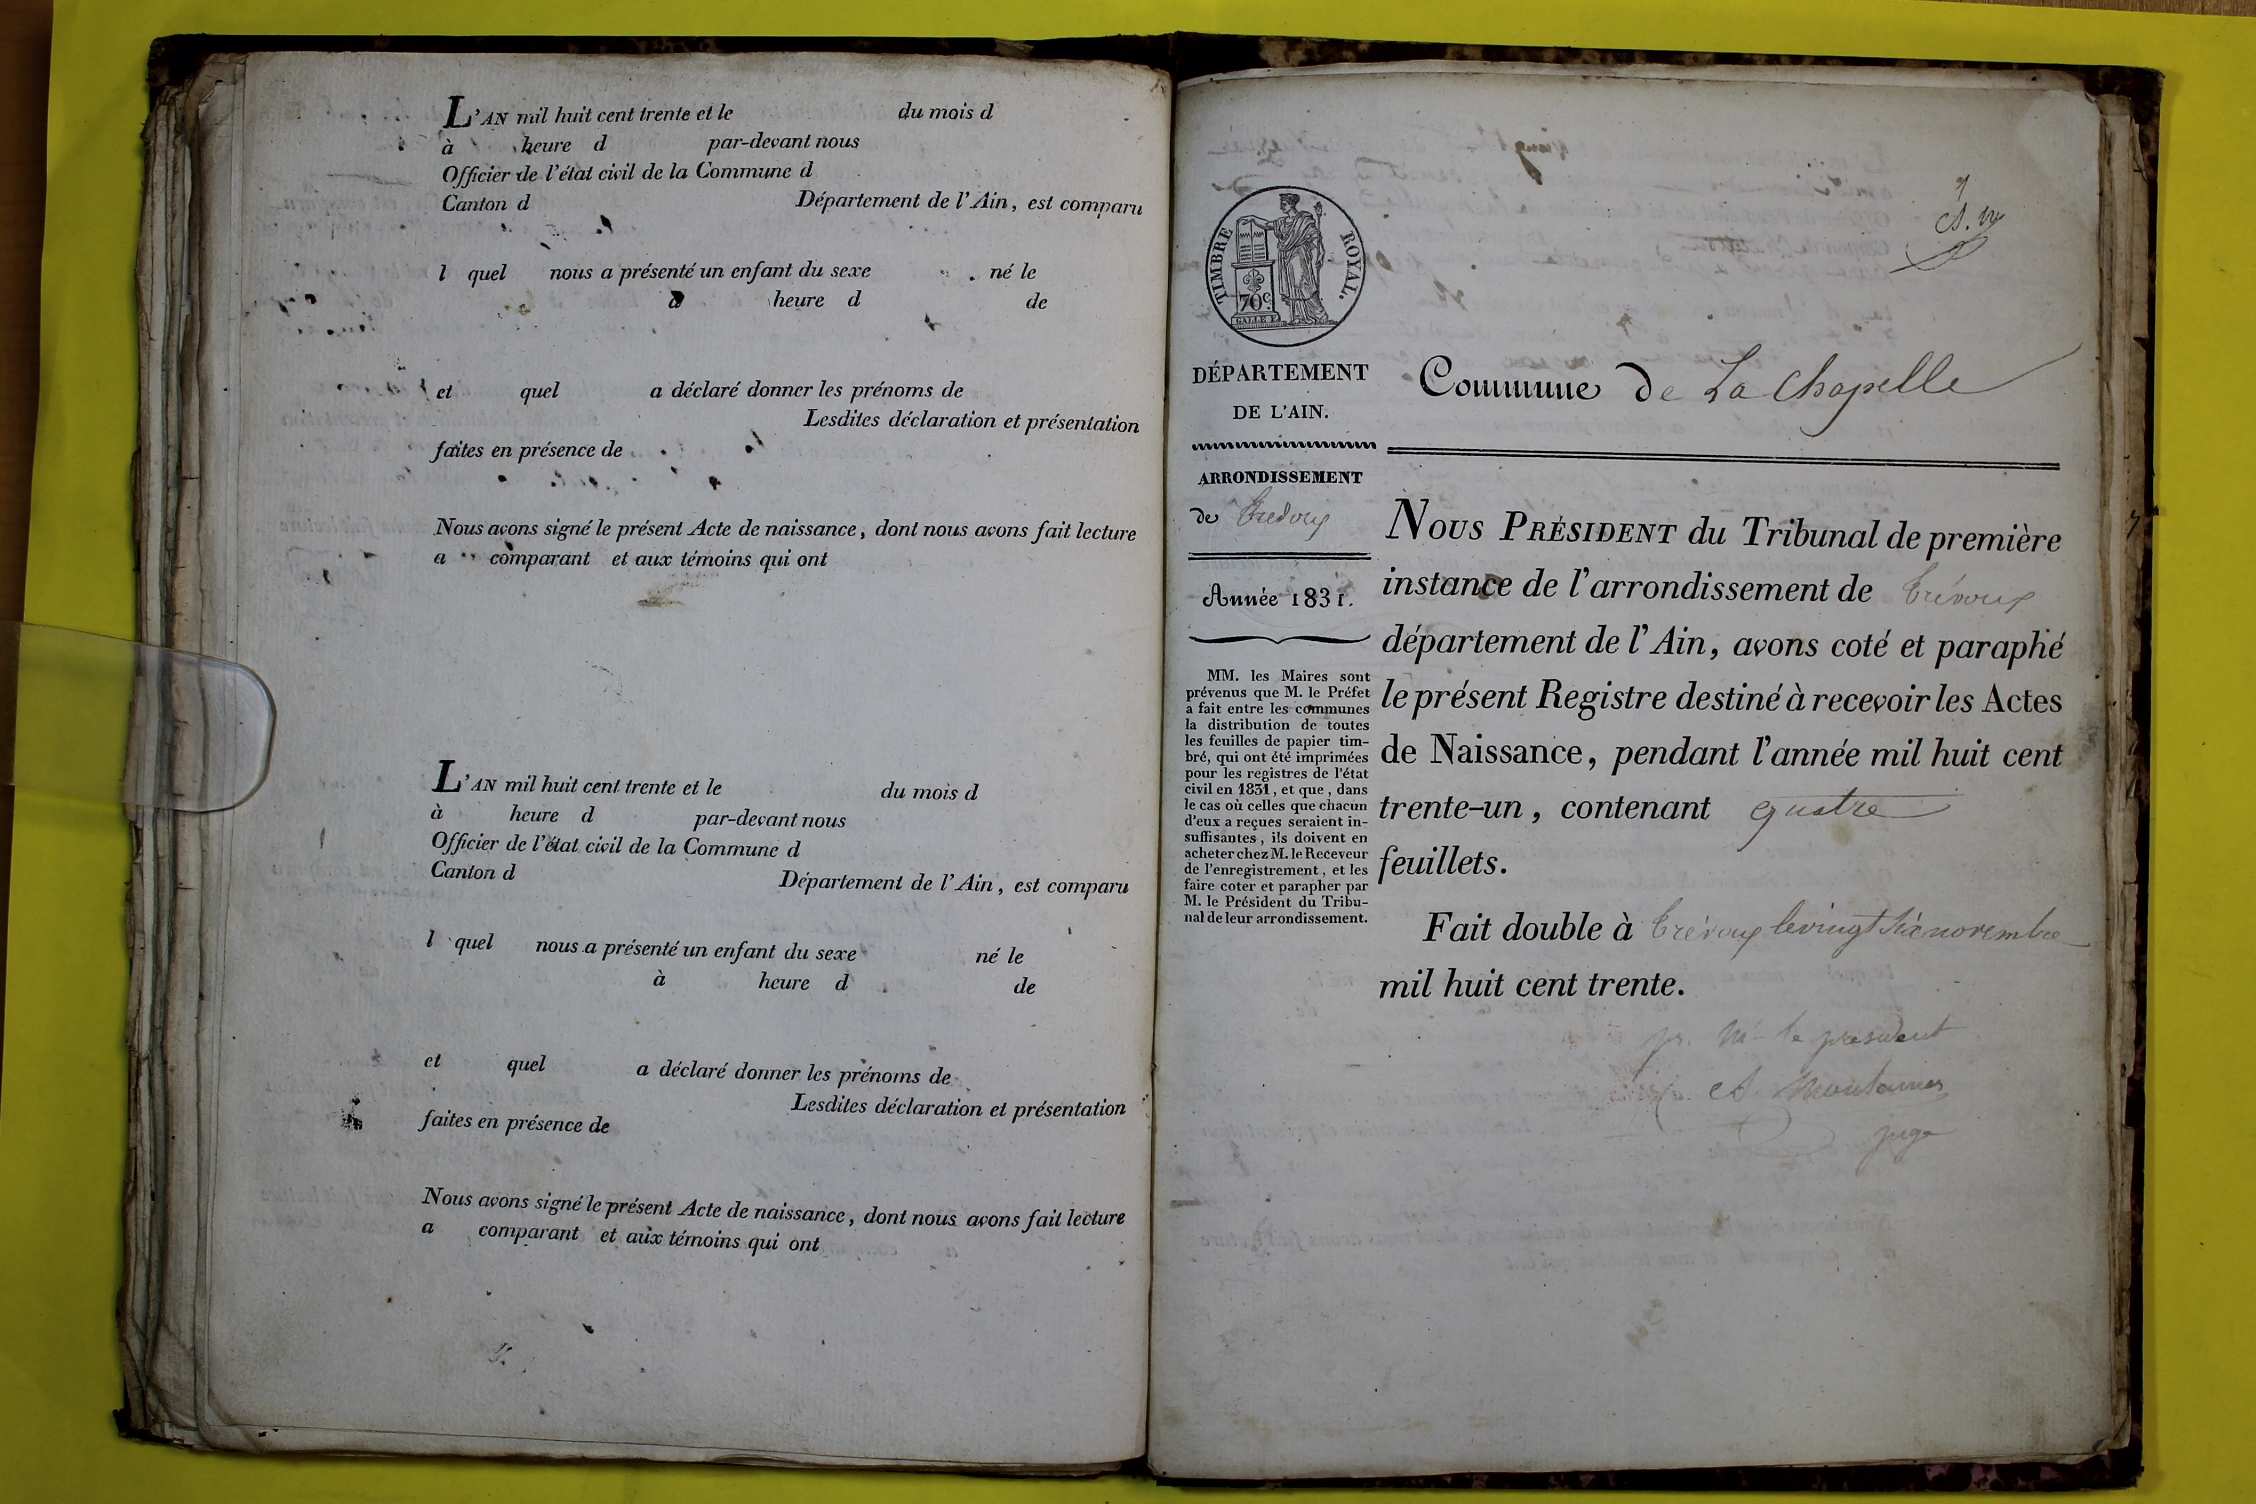 L'AN mil huit cent trente et le du mois d
à heure d par-devant nous
Officier de l'état civil de la Commune d
Canton d Département de l'Ain, est comparu
l quel nous a présenté un enfant du sexe né le
à heure d de
et quel a déclaré donner les prénoms de
Lesdites déclaration et présentation
faites en présence de
Nous avons signé le présent Acte de naissance, dont nous avons fait lecture
a comparant et aux témoins qui ont
L'AN mil huit cent trente et le du mois d
à heure d par-devant nous
Officier de l'état civil de la Commune d
Canton d Département de l'Ain, est comparu
l quel nous a présenté un enfant du sexe né le
à heure d de
et quel a déclaré donner les prénoms de
Lesdites déclaration et présentation
faites en présence de
Nous avons signé le présent Acte de naissance, dont nous avons fait lecture
a comparant et aux témoins qui ont
TIMBRE ROYAL.
70c.
DÉPARTEMENT
DE L'AIN.
ARRONDISSEMENT
de Trevoux
Année 1831.
MM. les Maires sont
prévenus que M. le Préfet
a fait entre les communes
la distribution de toutes
les feuilles de papier tim-
bré, qui ont été imprimées
pour les registres de l'état
civil en 1831, et que, dans
le cas où celles que chacun
d'eux a reçues seraient in-
suffisantes, ils doivent en
acheter chez M. le Receveur
de l'enregistrement, et les
faire coter et parapher par
M. le Président du Tribu-
nal de leur arrondissement.
Commune de La Chapelle
NOUS PRÉSIDENT du Tribunal de première
instance de l'arrondissement de Trévoux
département de l'Ain, avons coté et paraphé
le présent Registre destiné à recevoir les Actes
de Naissance, pendant l'année mil huit cent
trente-un, contenant quatre
feuillets.
Fait double à Trévoux le vingt six novembre
mil huit cent trente.
pr. Mr le president
juge